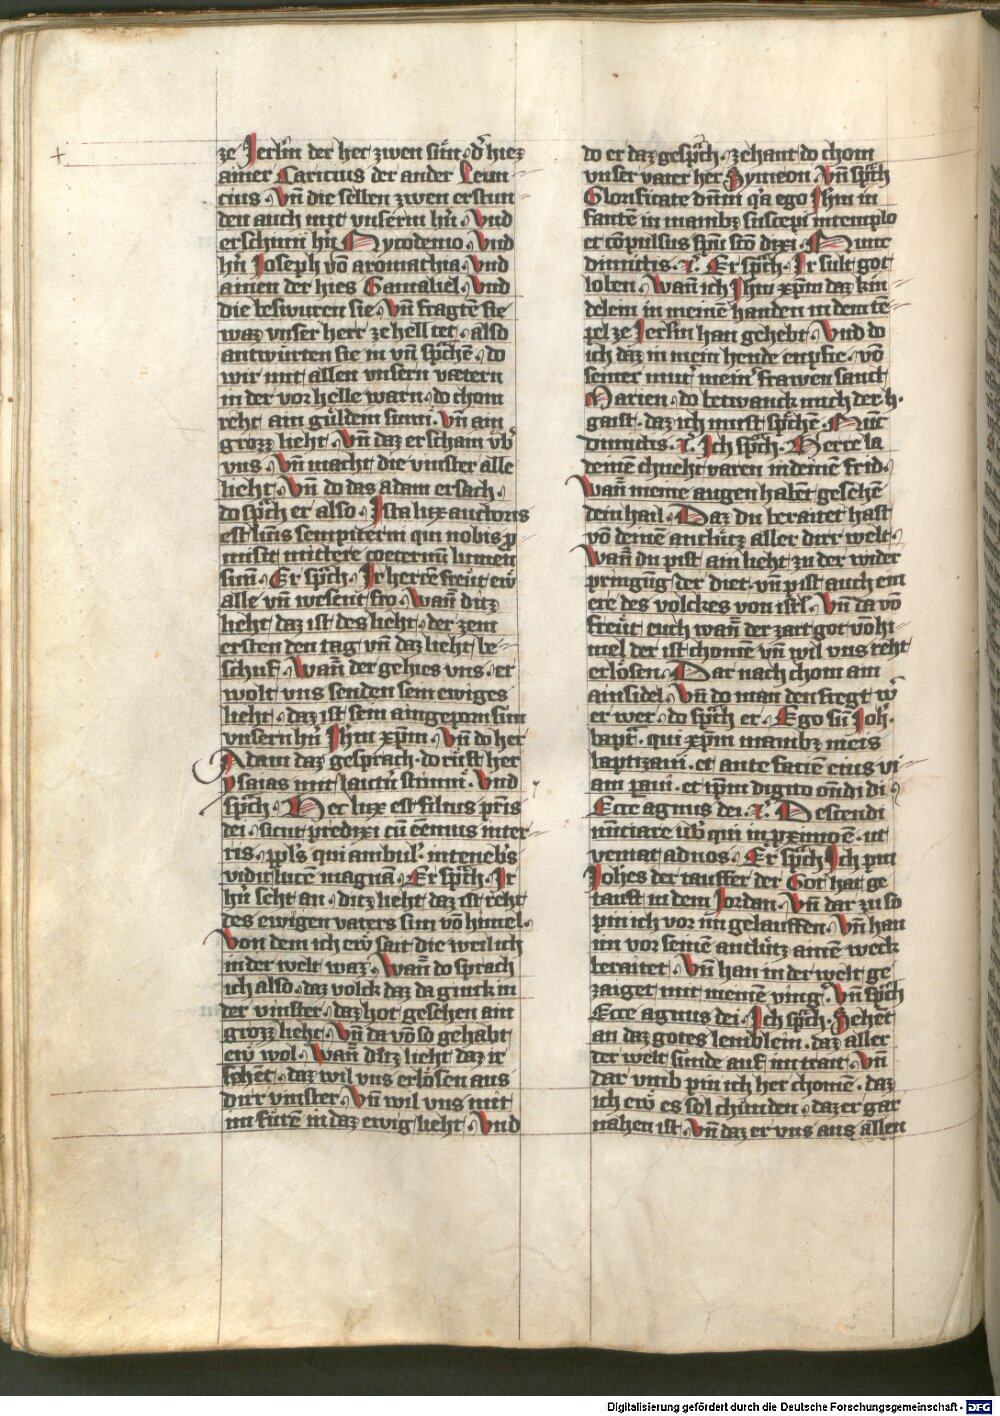 ze Jerlm̄ der het zwen sün · d̾ hiez
ainer Caricius der ander Leun
cius · Vn̄ die selben zwen erstun
den auch mit vnserm hn̄ · Vnd
erschinn hn̄ Nycodemo · Vnd
hn̄ Joseph vō aromathia · Vnd
ainen der hies Gamaliel · Vnd
die beswuren sie · Vn̄ fragtē sie
waz vnser herr ze hell tet · also
antwurten sie in vn̄ sp̄chē · do
wir mit allen vnsern vætern
in der vor helle warn · do chom
reht ain güldem sunn · Vn̄ ain
grozz lieht · Vn̄ daz erschain vb̾
vns · Vn̄ macht die vinster alle
lieht · Vn̄ do das adam ersach ·
do sp̄ch er also · Ista lux auctoris
est lum̄s sempiterni qui nobis p̄
misit mittere coeternū lumen
suū · Er sp̄ch · Ir herrē freüt ew̄
alle vn̄ wesent fro · Wan̄ ditz
lieht daz ist des lieht · der zem
ersten den tag vn̄ daz lieht be-
schuf · Wan̄ der gehies vns · er
wolt vns senden sein ewiges
lieht · daz ist sein aingeporn sun
vnsern hn̄ Jhm̄ xp̄m · Vn̄ do her
Adam daz gesprach · do rüft her
ysaias mit lautn̾ stimm̄ · Vnd
sp̄ch · Hec lux est filius pr̄is
dei · sicut predixi cū eēmus inter-
ris · ppl̄s qui ambul̾ · in teneb̾s
vidit lucē magnā · Er sp̄ch · Ir
hn̄ seht an · ditz lieht daz ist reht
des ewigen vaters sun vō himel ·
Von dem ich ew̄ sait die weil ich
in der welt waz · Wan̄ do sprach
ich also · daz volck daz da ginck in
der vinster · daz hot gesehen ain
grozz lieht · Vn̄ da vō so gehabt
ew̄ wol · Wan̄ ditz lieht daz ir
sehēt · daz wil vns erlösen aus
dirr vinster · Vn̄ wil vns mit
im fürē in daz ewig lieht · Vnd
do er daz gesp̄ch · zehant do chom
vnser vater her Symeon · Vn̄ sp̄ch
Glorificate dn̄m q̾a ego Jhm̄ in
fantē in manib3 suscepi in templo
et cōpulsus spū scō dixi · Nunc
dimittis · ꝛc̾ · Er sp̄ch · Ir sült got
loben · Wan̄ ich Jhm̄ xp̄m daz kin
delein in meinē handen in dem tē
pel ze Jerlm̄ han gehebt · Vnd do
ich daz in mein hende enpfie · vō
seiner mut̾ mein̾ frawen sand
Marien · do betwanck mich der h̾ ·
gaist · daz ich must sp̄chē · Nūc
dimittis · ꝛc̾ · Ich sp̄ch · Herre la
deinē chneht varen in deinē frid ·
Wan̄ meine augen habēt gesehē
dein hail · Daz du beraitet hast
vō deinē antlütz aller dirr welt ·
Wan̄ du pist ain lieht zu der wider
pringūg der diet · vn̄ pist auch ein
ere des volckes von isrl̾ · Vn̄ da vō
freüt euch wan̄ der zart got vō hi
mel der ist chomē vn̄ wil vns reht
erlösen · Dar nach chom ain
ainsidel · Vn̄ do man den fregt w̾
er wer · do sp̄ch er · Ego sū Joh̾ ·
bapt̾ · qui xp̄m manib3 meis
baptizaui · et ante faciē eius vi
am paui · et ip̄m digito ondi di ·
Ecce agnus dei · ꝛc̾ · Descendi
nūnciare vb̾ qui in p̄ximo ē · ut
veniat ad nos · Er sp̄ch Ich pin
Johes der tauffer der Got hat ge
tauft in dem Jordan · Vn̄ dar zu so
pin ich vor im gelauffen · Vn̄ han
im vor seinē antlütz ainē weck
beraitet · Vn̄ han in der welt ge
zaiget mit meinē ving̾ · Vn̄ sp̄ch
Ecce agnus dei · Ich sp̄ch · Sehet
an daz gotes lemblein · daz aller
der welt sunde auf im trait · Vn̄
dar vmb pin ich her chomē · daz
ich ew̄ es sol chünden · daz er gar
nahen ist · Vn̄ daz er vns aus allen
Digitalisierung gefördert durch die Deutsche Forschungsgemeinschaft - DFG